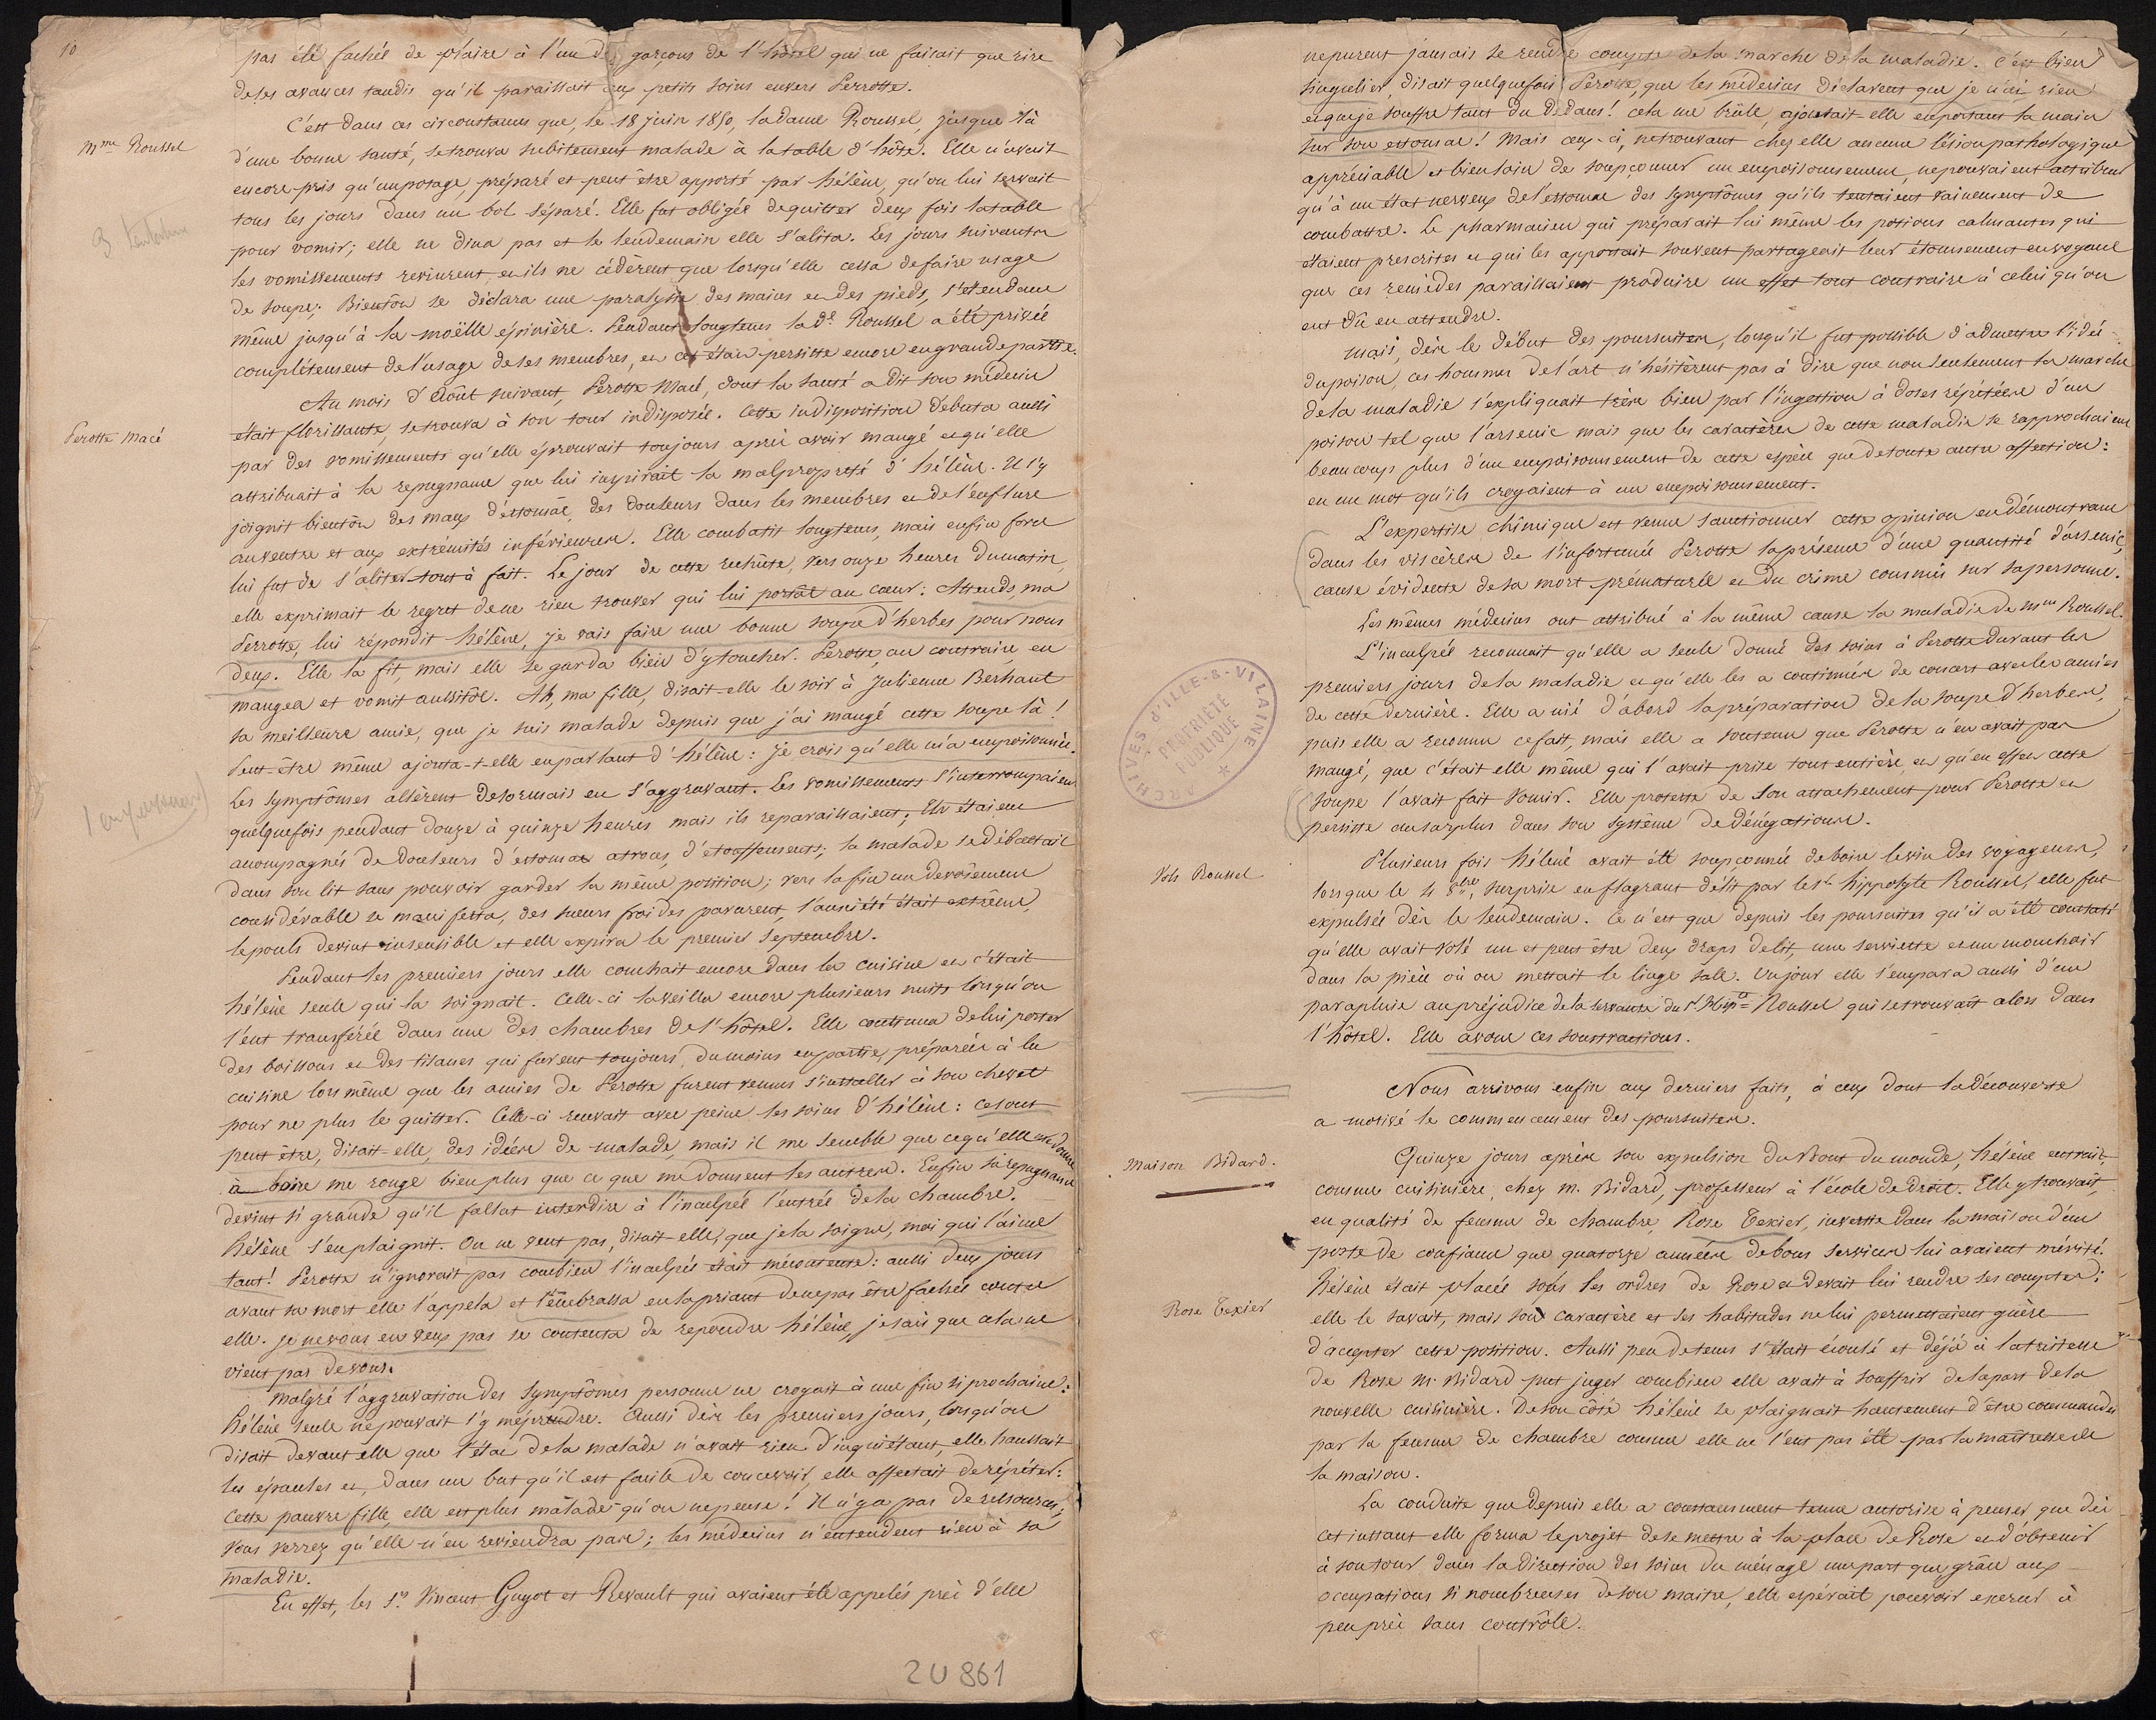 10
pas été fachée de plaire à l'un des garçons de l'hôtel qui ne faisait que rire
de ses avances tandis qu'il paraissait aux petits soins envers Perrotte.
C'est dans ces circonstances que, le 18 Juin 1850, la dame Roussel, jusque là
Mme Roussel
d'une bonne santé, se trouva subitement malade à la table d'hôte. Elle n'avait
encore pris qu'un potage, préparé et peut être apporté par hélène, qu'on lui servait
tous les jours dans un bol séparé. Elle fut obligée de quitter deux fois la table
3 tentative
pour vomir; elle ne dina pas et le lendemain elle s'alita. Les jours suivants
les vomissements revinrent et ils ne cédèrent que lorsqu'elle cessa de faire usage
de soupe; Bientôt se déclara une paralysie des mains et des pieds, s'étendant
même jusqu'à la moëlle épinière. Pendant longtems la de Roussel a été privée
complétement de l'usage de ses membres, et cet état persiste encore en grande partie.
Au mois d'Août suivant, Perotte Macé, dont la santé a dit son médecin
Perotte Macé
était florissante, se trouva à son tour indisposée. Cette indisposition débuta aussi
par des vomissements qu'elle éprouvait toujours après avoir mangé et qu'elle
attribuait à la repugnance que lui inspirait la malpropreté d'hélène. Il s'y
joignit bientôt des maux d'estomac, des douleurs dans les membres et de l'enflure
au ventre et aux extrémités inférieures. Elle combatit longtems, mais enfin force
lui fut de s'aliter tout à fait. Le jour de cette rechûte, vers onze heures du matin,
elle exprimait le regret de ne rien trouver qui lui portât au cœur: Attends, ma
Perrotte, lui répondit hélène, je vais faire une bonne soupe d'herbes pour nous
deux. Elle la fit, mais elle se garda bien d'y toucher. Perotte, au contraire, en
mangea et vomit aussitôt. Ah, ma fille, disait-elle le soir à Julienne Berhaut
sa meilleure amie, que je suis malade depuis que j'ai mangé cette soupe là!
Peut-être même ajouta-t-elle en parlant d'hélène: je crois qu'elle m'a empoisonnée.
Les symptômes allèrent desormais en s'aggravant. Les vomissements s'interrompaient
1 empoisonnt
quelquefois pendant douze à quinze heures mais ils reparaissaient; Ils étaient
accompagnés de douleurs d'estomac atroces, d'étouffements; la malade se débattait
dans son lit sans pouvoir garder la même position; vers la fin un dévoiement
considérable se manifesta, des sueurs froides parurent, l'anxiété était extrême,
le pouls devint insensible et elle expira le premier septembre.
Pendant les premiers jours elle couchait encore dans la cuisine et c'était
hélène seule qui la soignait. Celle-ci la veilla encore plusieurs nuits lorsqu'on
l'eut transférée dans une des chambres de l'hôtel. Elle continua de lui porter
des boissons et des tisanes qui furent toujours, du moins en partie, préparées à la
cuisine lors même que les amies de Perotte furent venues s'installer à son chevet
pour ne plus le quitter. Celle-ci recevait avec peine les soins d'hélène: ce sont
peut être, disait-elle, des idées de malade, mais il me semble que ce qu'elle me donne
à boire me ronge bien plus que ce que me donnent les autres. Enfin sa repugnance
devint si grande qu'il fallut interdire à l'inculpée l'entrée de la chambre.
hélène s'en plaignit. On ne veut pas, disait-elle, que je la soigne, moi qui l'aime
tant! Perotte n'ignorait pas combien l'inculpée était mécontente: aussi deux jours
avant sa mort elle l'appela et l'embrassa en la priant de ne pas être fachée contre
elle. je ne vous en veux pas se contenta de repondre hélène, je sais que cela ne
vient pas de vous.
Malgré l'aggravation des symptômes personne ne croyait à une fin si prochaine:
hélène seule ne pouvait s'y méprendre. Aussi dès les premiers jours, lorsqu'on
disait devant elle que l'état de la malade n'avait rien d'inquiétant, elle haussait
les épaules et, dans un but qu'il est facile de concevoir, elle affectait de répéter:
Cette pauvre fille, elle est plus malade qu'on ne pense! Il n'y a pas de ressources,
vous verrez qu'elle n'en reviendra pas; les médecins n'entendent rien à sa
maladie.
En effet, les Srs Vincent Guyot et Revault qui avaient été appelés près d'elle
2U861
ne purent jamais se rendre compte de la marche de la maladie. C'est bien
singulier, disait quelquefois Perotte, que les médecins déclarent que je n'ai rien
et que je souffre tant du dedans! cela me brûle, ajoutait-elle en portant la main
sur son estomac! Mais ceux-ci, ne trouvant chez elle aucune lésion pathologique
appréciable et bien loin de soupçonner un empoisonnement, ne pouvaient attribuer
qu'à un état nerveux de l'estomac des symptômes qu'ils tentaient vainement de
combattre. Le pharmacien qui préparait lui même les potions calmantes qui
étaient prescrites et qui les apportait souvent partageait leur étonnement en voyant
que ces remèdes paraissaient produire un effet tout contraire à celui qu'on
eut dû en attendre.
Mais, dès le début des poursuites, lorsqu'il fut possible d'admettre l'idée
du poison, ces hommes de l'art n'hésitèrent pas à dire que non seulement la marche
de la maladie s'expliquait très bien par l'ingestion à doses répétées d'un
poison tel que l'arsenic mais que les caractères de cette maladie se rapprochaient
beaucoup plus d'un empoisonnement de cette espèce que de toute autre affection:
en un mot qu'ils croyaient à un empoisonnement.
L'expertise chimique est venue sanctionner cette opinion en démontrant
dans les viscères de l'infortunée Perotte la présence d'une quantité d'arsenic,
cause évidente de sa mort prématurée et du crime commis sur sa personne.
Les mêmes médecins ont attribué à la même cause la maladie de Mme Roussel.
L'inculpée reconnait qu'elle a seule donné des soins à Perotte durant les
premiers jours de la maladie et qu'elle les a continués de concert avec les amies
de cette dernière. Elle a nié d'abord la préparation de la soupe d'herbes,
puis elle a reconnu ce fait, mais elle a soutenu que Perotte n'en avait pas
mangé, que c'était elle même qui l'avait prise tout entière, et qu'en effet cette
soupe l'avait fait vomir. Elle proteste de son attachement pour Perotte et
persiste au surplus dans son système de dénégations.
ARCHIVES D'ILLE-&-VILAINE
PROPRIÉTÉ
PUBLIQUE
Plusieurs fois hélène avait été soupçonnée de boire le vin des voyageurs,
Vols Roussel
lorsque le 11 8bre, surprise en flagrant délit par le Sr hippolyte Roussel, elle fut
expulsée dès le lendemain. Ce n'est que depuis les poursuites qu'il a été constaté
qu'elle avait volé un et peut être deux draps de lit, une serviette et un mouchoir
dans la pièce où on mettait le linge sale. Un jour elle s'empara aussi d'un
parapluie au préjudice de la servante du Sr Hipte Roussel qui se trouvait alors dans
l'hôtel. Elle avoue ces soustractions.
Nous arrivons enfin aux derniers faits, à ceux dont la découverte
a motivé le commencement des poursuites.
Maison Bidard.
Quinze jours après son expulsion du Bout du monde, hélène entrait,
comme cuisinière, chez M. Bidard, professeur à l'école de Droit. Elle y trouvait,
en qualité de femme de chambre, Rose Texier, investie dans la maison d'un
poste de confiance que quatorze années de bons services lui avaient mérité.
hélène était placée sous les ordres de Rose et devait lui rendre ses comptes:
Rose Texier
elle le savait, mais son caractère et ses habitudes ne lui permettaient guère
d'accepter cette position. Aussi peu de tems s'était écoulé et déjà à la tristesse
de Rose M. Bidard put juger combien elle avait à souffrir de la part de la
nouvelle cuisinière. De son côté hélène se plaignait hautement d'être commandée
par la femme de chambre comme elle ne l'eut pas été par la maîtresse de
la maison.
La conduite que depuis elle a constamment tenue autorise à penser que dès
cet instant elle forma le projet de se mettre à la place de Rose et d'obtenir
à son tour dans la direction des soins du ménage une part que grâce aux
occupations si nombreuses de son maitre, elle espérait pouvoir exercer à
peu près sans contrôle.